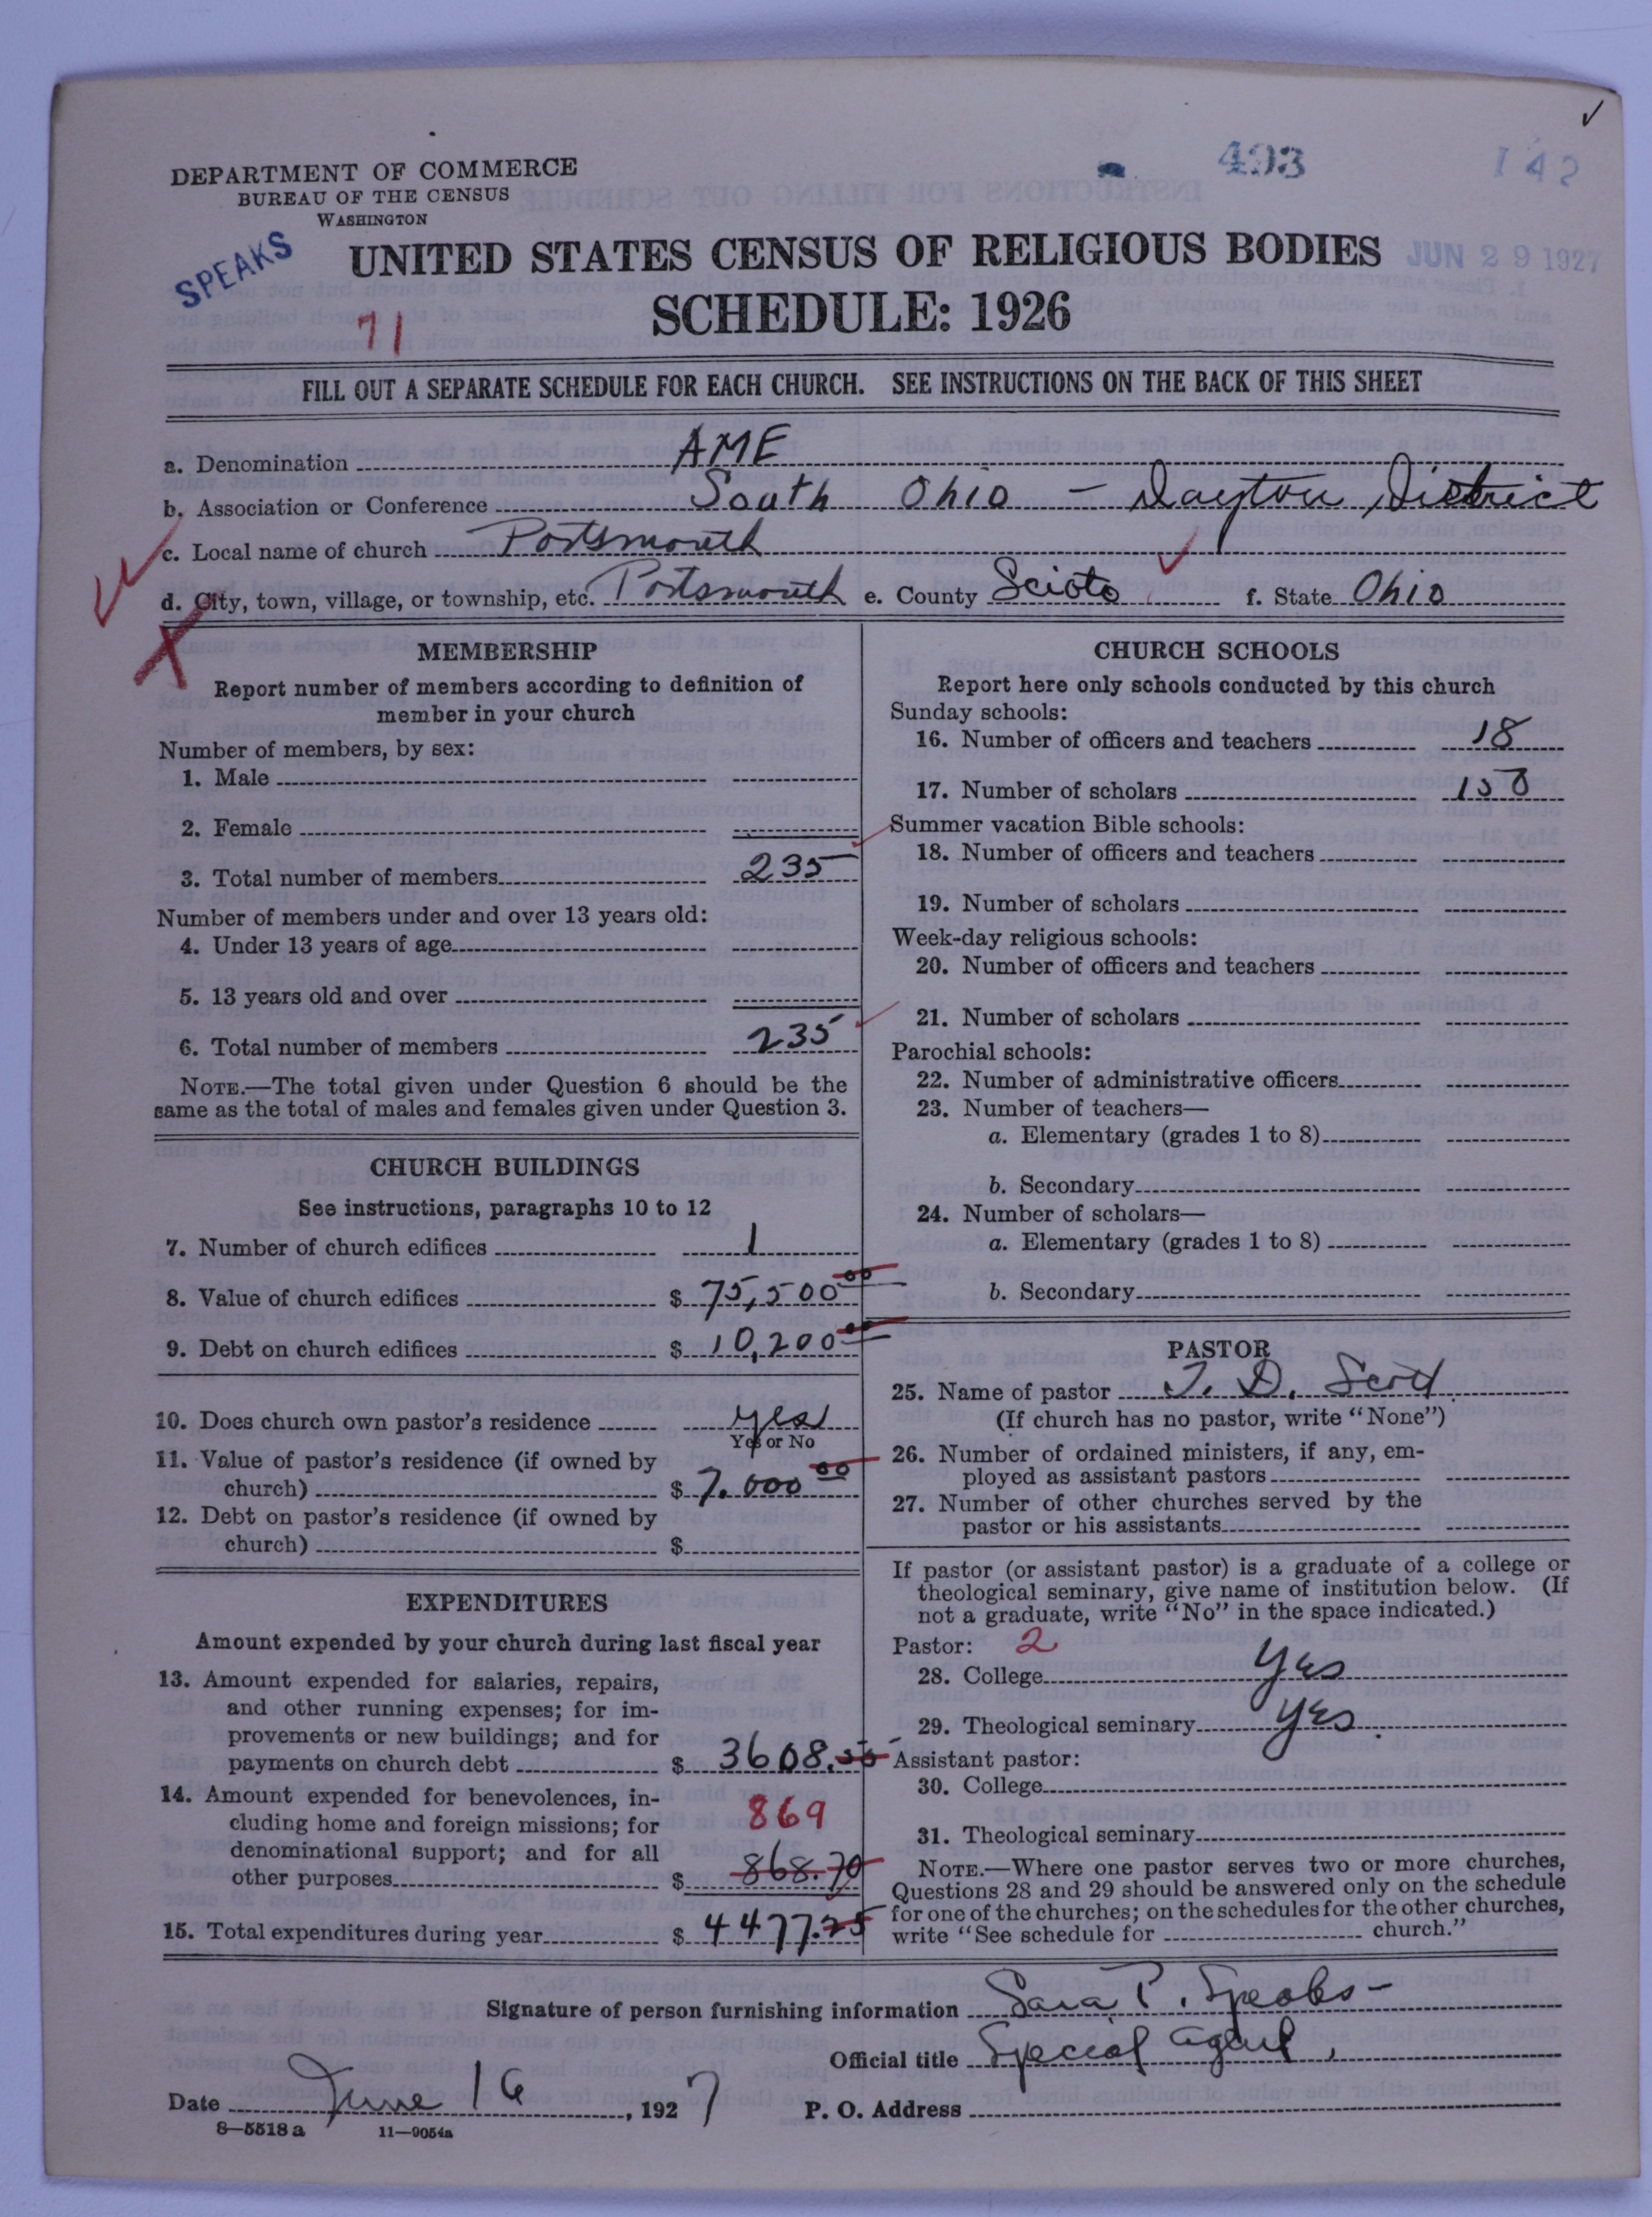 DEPARTMENT OF COMMERCE
BUREAU OF THE CENSUS
WASHINGTON
493
142
SPEAKS
UNITED STATES CENSUS OF RELIGIOUS BODIES
JUN 29 1927
71
SCHEDULE: 1926
FILL OUT A SEPARATE SCHEDULE FOR EACH CHURCH. SEE INSTRUCTIONS ON THE BACK OF THIS SHEET
a. Denomination AME
b. Association or Conference South Ohio - Dayton District
c. Local name of church Portsmouth
d. City, town, village, or township, etc. Portsmouth e. County Scioto f. State Ohio
MEMBERSHIP
Report number of members according to definition of
member in your church
Number of members, by sex:
1. Male
2. Female
3. Total number of members 235
Number of members under and over 13 years old:
4. Under 13 years of age
5. 13 years old and over
6. Total number of members 235
NOTE.—The total given under Question 6 should be the
same as the total of males and females given under Question 3.
CHURCH BUILDINGS
See instructions, paragraphs 10 to 12
7. Number of church edifices 1
8. Value of church edifices $ 75,500 00
9. Debt on church edifices $ 10,200 00
10. Does church own pastor's residence yes
Yes or No
11. Value of pastor's residence (if owned by
church) $ 7.000 00
12. Debt on pastor's residence (if owned by
church) $
EXPENDITURES
Amount expended by your church during last fiscal year
13. Amount expended for salaries, repairs,
and other running expenses; for im-
provements or new buildings; and for
payments on church debt $ 3608.55
14. Amount expended for benevolences, in-
cluding home and foreign missions; for 869
denominational support; and for all
other purposes $ 868.70
15. Total expenditures during year $ 4477.25
CHURCH SCHOOLS
Report here only schools conducted by this church
Sunday schools:
16. Number of officers and teachers 18
17. Number of scholars 150
Summer vacation Bible schools:
18. Number of officers and teachers
19. Number of scholars
Week-day religious schools:
20. Number of officers and teachers
21. Number of scholars
Parochial schools:
22. Number of administrative officers
23. Number of teachers—
a. Elementary (grades 1 to 8)
b. Secondary
24. Number of scholars—
a. Elementary (grades 1 to 8)
b. Secondary
PASTOR
25. Name of pastor J. D. Scott
(If church has no pastor, write "None")
26. Number of ordained ministers, if any, em-
ployed as assistant pastors
27. Number of other churches served by the
pastor or his assistants
If pastor (or assistant pastor) is a graduate of a college or
theological seminary, give name of institution below. (If
not a graduate, write "No" in the space indicated.)
Pastor: 2
28. College yes
29. Theological seminary yes
Assistant pastor:
30. College
31. Theological seminary
NOTE.—Where one pastor serves two or more churches,
Questions 28 and 29 should be answered only on the schedule
for one of the churches; on the schedules for the other churches,
write "See schedule for church."
Signature of person furnishing information Sara P. Speaks-
Official title Special Agent,
Date June 16, 1927 P. O. Address
8—5518a 11—9054a